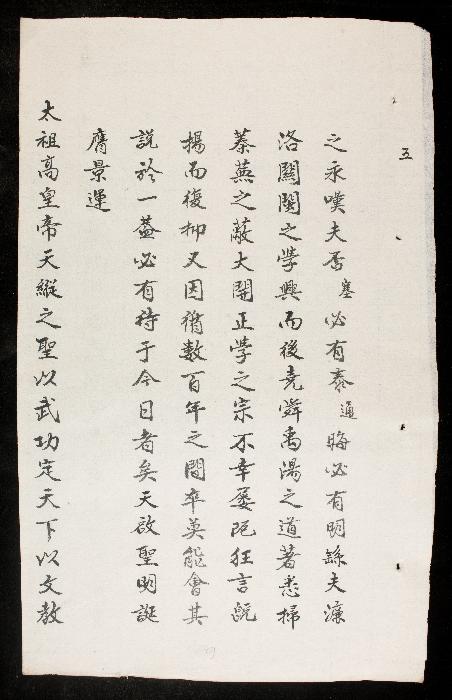 五
之永嘆夫否塞必有泰通晦必有明繇夫濂
洛關閩之學興而後堯舜禹湯之道著悉掃
蓁蕪之蔽大開正學之宗不幸屢阨狂言旣
揚而復抑又因循數百年之間卒莫能會其
說於一葢必有待于今日者矣天啟聖明誕
膺景運
太祖高皇帝天縱之聖以武功定天下以文教